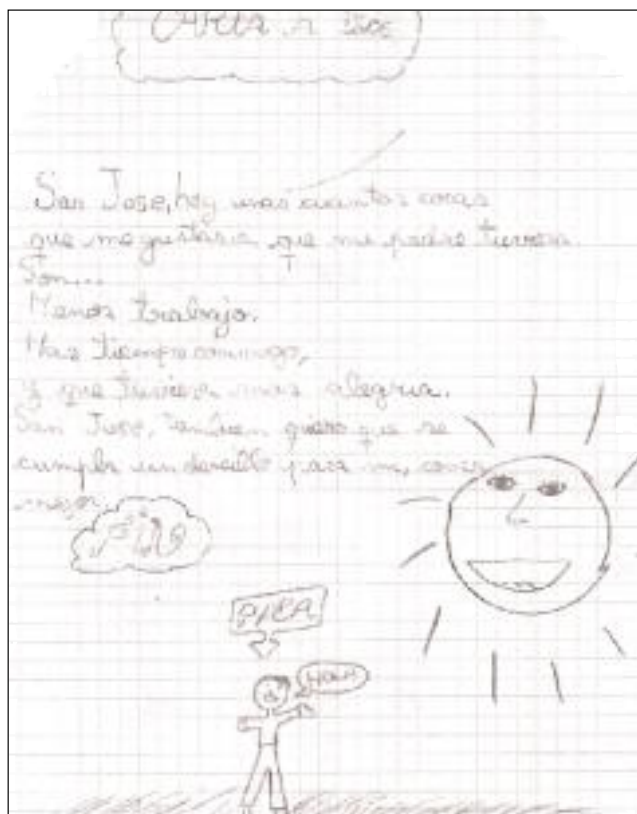 San Jose, hay unas cuantas cosas
que me gustaria que mi padre tuviera.
Son...
Menos trabajo.
Mas tiempo conmigo,
y que tuviera mas alegria.
San Jose, tambien quiero que se
cumpla un detalle para mi, comer
mejor
FIN
HOLA